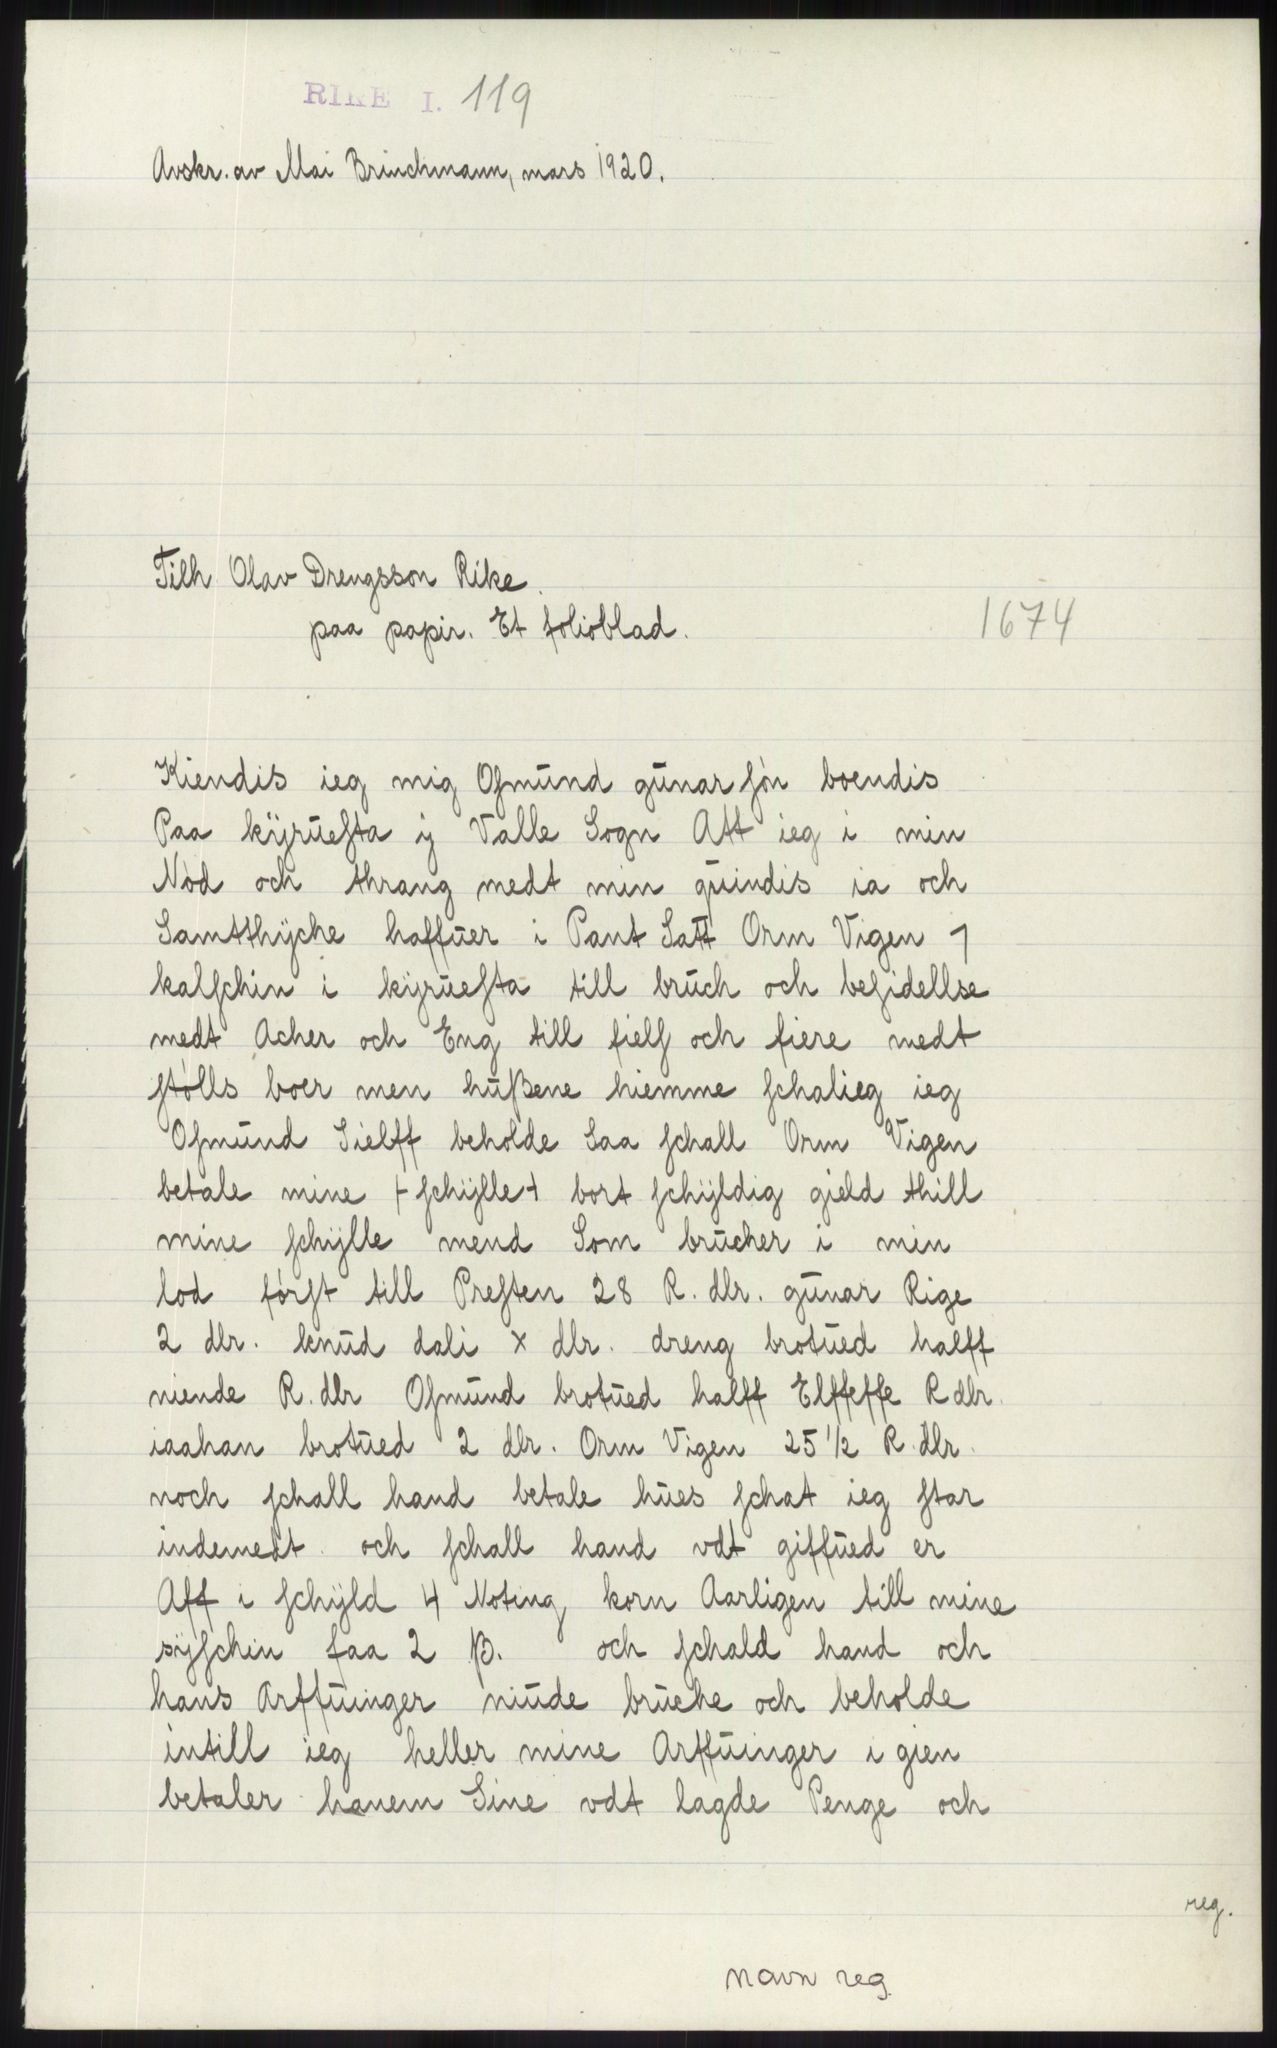 RIKE I. 119
Avskr. av Mai Brinchmann, mars 1920.
Tilh. Olav Drengsson Rike.
paa papir. Et folioblad.
1674
Kiendis ieg mig Oſmūnd gūnar ſøn boendis
Paa kÿrūeſta ÿ Valle Sogn Att ieg i min
Nød och thrang medt min qūindis ia och
Samtthÿche haffūer i Pant Satt Orm Vigen 1
kalſchin i kÿrūeſta till brūch och beſidellse
medt Acher och Eng till fielſ och fiere medt
ſtølls boer men hūßene hiemme ſchalieg ieg
Oſmūnd Sielff beholde Saa ſchall Orm Vigen
betale mine + ſchÿlle + bort ſchÿldig gield thill
mine ſchÿlle mend Som brūcher i min
lod førſt till Preſten 28 R. dlr. gūnar Rige
2 dlr. knūd dali x dlr. dreng brotūed halff
niende R. dlr Oſmūnd brotūed halff Elffeffe R dlr.
iaahan brotūed 2 dlr. Orm Vigen 25 1/2 R. dlr.
noch ſchall hand betale hūes ſchat ieg ſtar
indemedt och ſchall hand vdt giffūed er
Aff i ſchÿld 4 Noting korn Aarligen till mine
sÿſchin faa 2 ß. och ſchald hand och
hans Arffūinger niūde brūche och beholde
intill ieg heller mine Arffūinger i gien
betaler hanem Sine vdt lagde Penge och
reg.
navn reg.